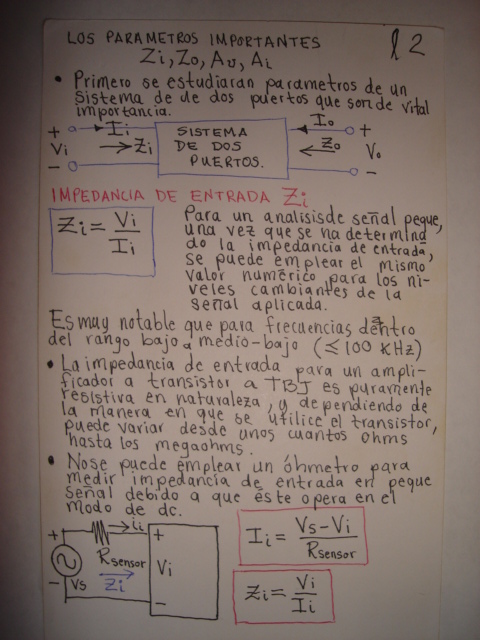 LOS PARAMETROS IMPORTANTES
Zi, Zo, Av, Ai
12
• Primero se estudiaran parametros de un
sistema de de dos puertos que son de vital
importancia.
+ Ii SISTEMA Io +
Vi → Zi DE DOS ← Zo Vo
- PUERTOS. -
IMPEDANCIA DE ENTRADA Zi
Zi = Vi / Ii
Para un analisis de señal peque,
una vez que se ha determina
do la impedancia de entrada,
se puede emplear el mismo
valor numérico para los ni-
veles cambiantes de la
señal aplicada.
Es muy notable que para frecuencias dentro
del rango bajo a medio-bajo (≤ 100 KHz)
• La impedancia de entrada para un ampli-
ficador a transistor a TBJ es puramente
resistiva en naturaleza, y dependiendo de
la manera en que se utilice el transistor,
puede variar desde unos cuantos ohms
hasta los megaohms.
• No se puede emplear un óhmetro para
medir impedancia de entrada en peque
señal debido a que éste opera en el
modo de dc.
+ → ii +
Rsensor Vi
- Vs Zi -
Ii = Vs - Vi / Rsensor
Zi = Vi / Ii